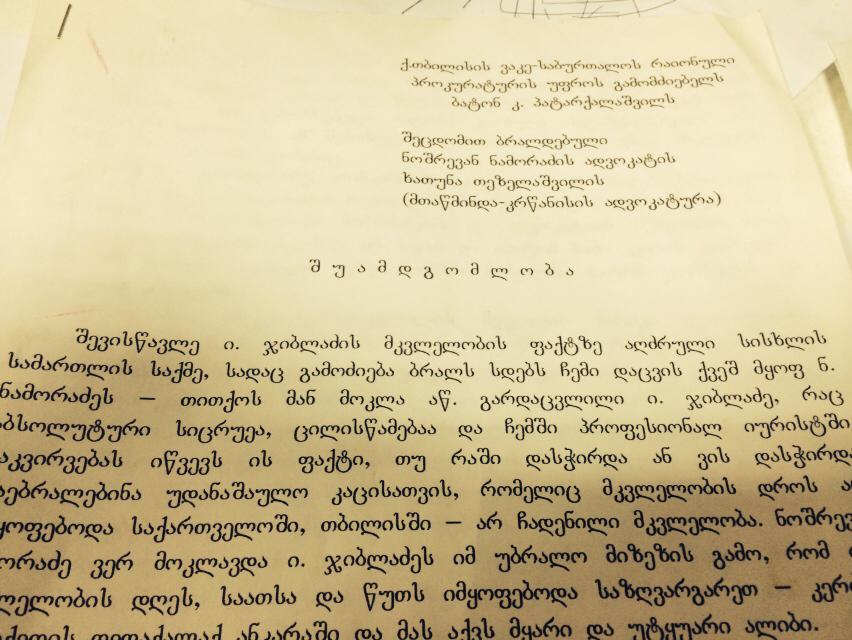 ქ.თბილისის ვაკე-საბურთალოს რაიონული
პროკურატურის უფროს გამომძიებელს
ბატონ კ. პატარქალაშვილს
შეცდომით ბრალდებული
ნოშრევან ნამორაძის ადვოკატის
ხათუნა თეზელაშვილის
(მთაწმინდა-კრწანისის ადვოკატურა)
შ უ ა მ დ გ ო მ ლ ო ბ ა
შევისწავლე ი. ჯიბლაძის მკვლელობის ფაქტზე აღძრული სისხლის
სამართლის საქმე, სადაც გამოძიება ბრალს სდებს ჩემი დაცვის ქვეშ მყოფ ნ.
ნამორაძეს – თითქოს მან მოკლა აწ. გარდაცვლილი ი. ჯიბლაძე, რაც
აბსოლუტური სიცრუეა, ცილისწამებაა და ჩემში პროფესიონალ იურისტში
აკვირვებას იწვევს ის ფაქტი, თუ რაში დასჭირდა ან ვის დასჭირდა
ებრალებინა უდანაშაულო კაცისათვის, რომელიც მკვლელობის დროს არ
ყოფებოდა საქართველოში, თბილისში – არ ჩადენილი მკვლელობა. ნოშრევ
ორაძე ვერ მოკლავდა ი. ჯიბლაძეს იმ უბრალო მიზეზის გამო, რომ
ლელობის დღეს, საათსა და წუთს იმყოფებოდა საზღვარგარეთ – კერ
დედაქალაქ ანკარაში და მას აქვს მყარი და უტყუარი ალიბი.